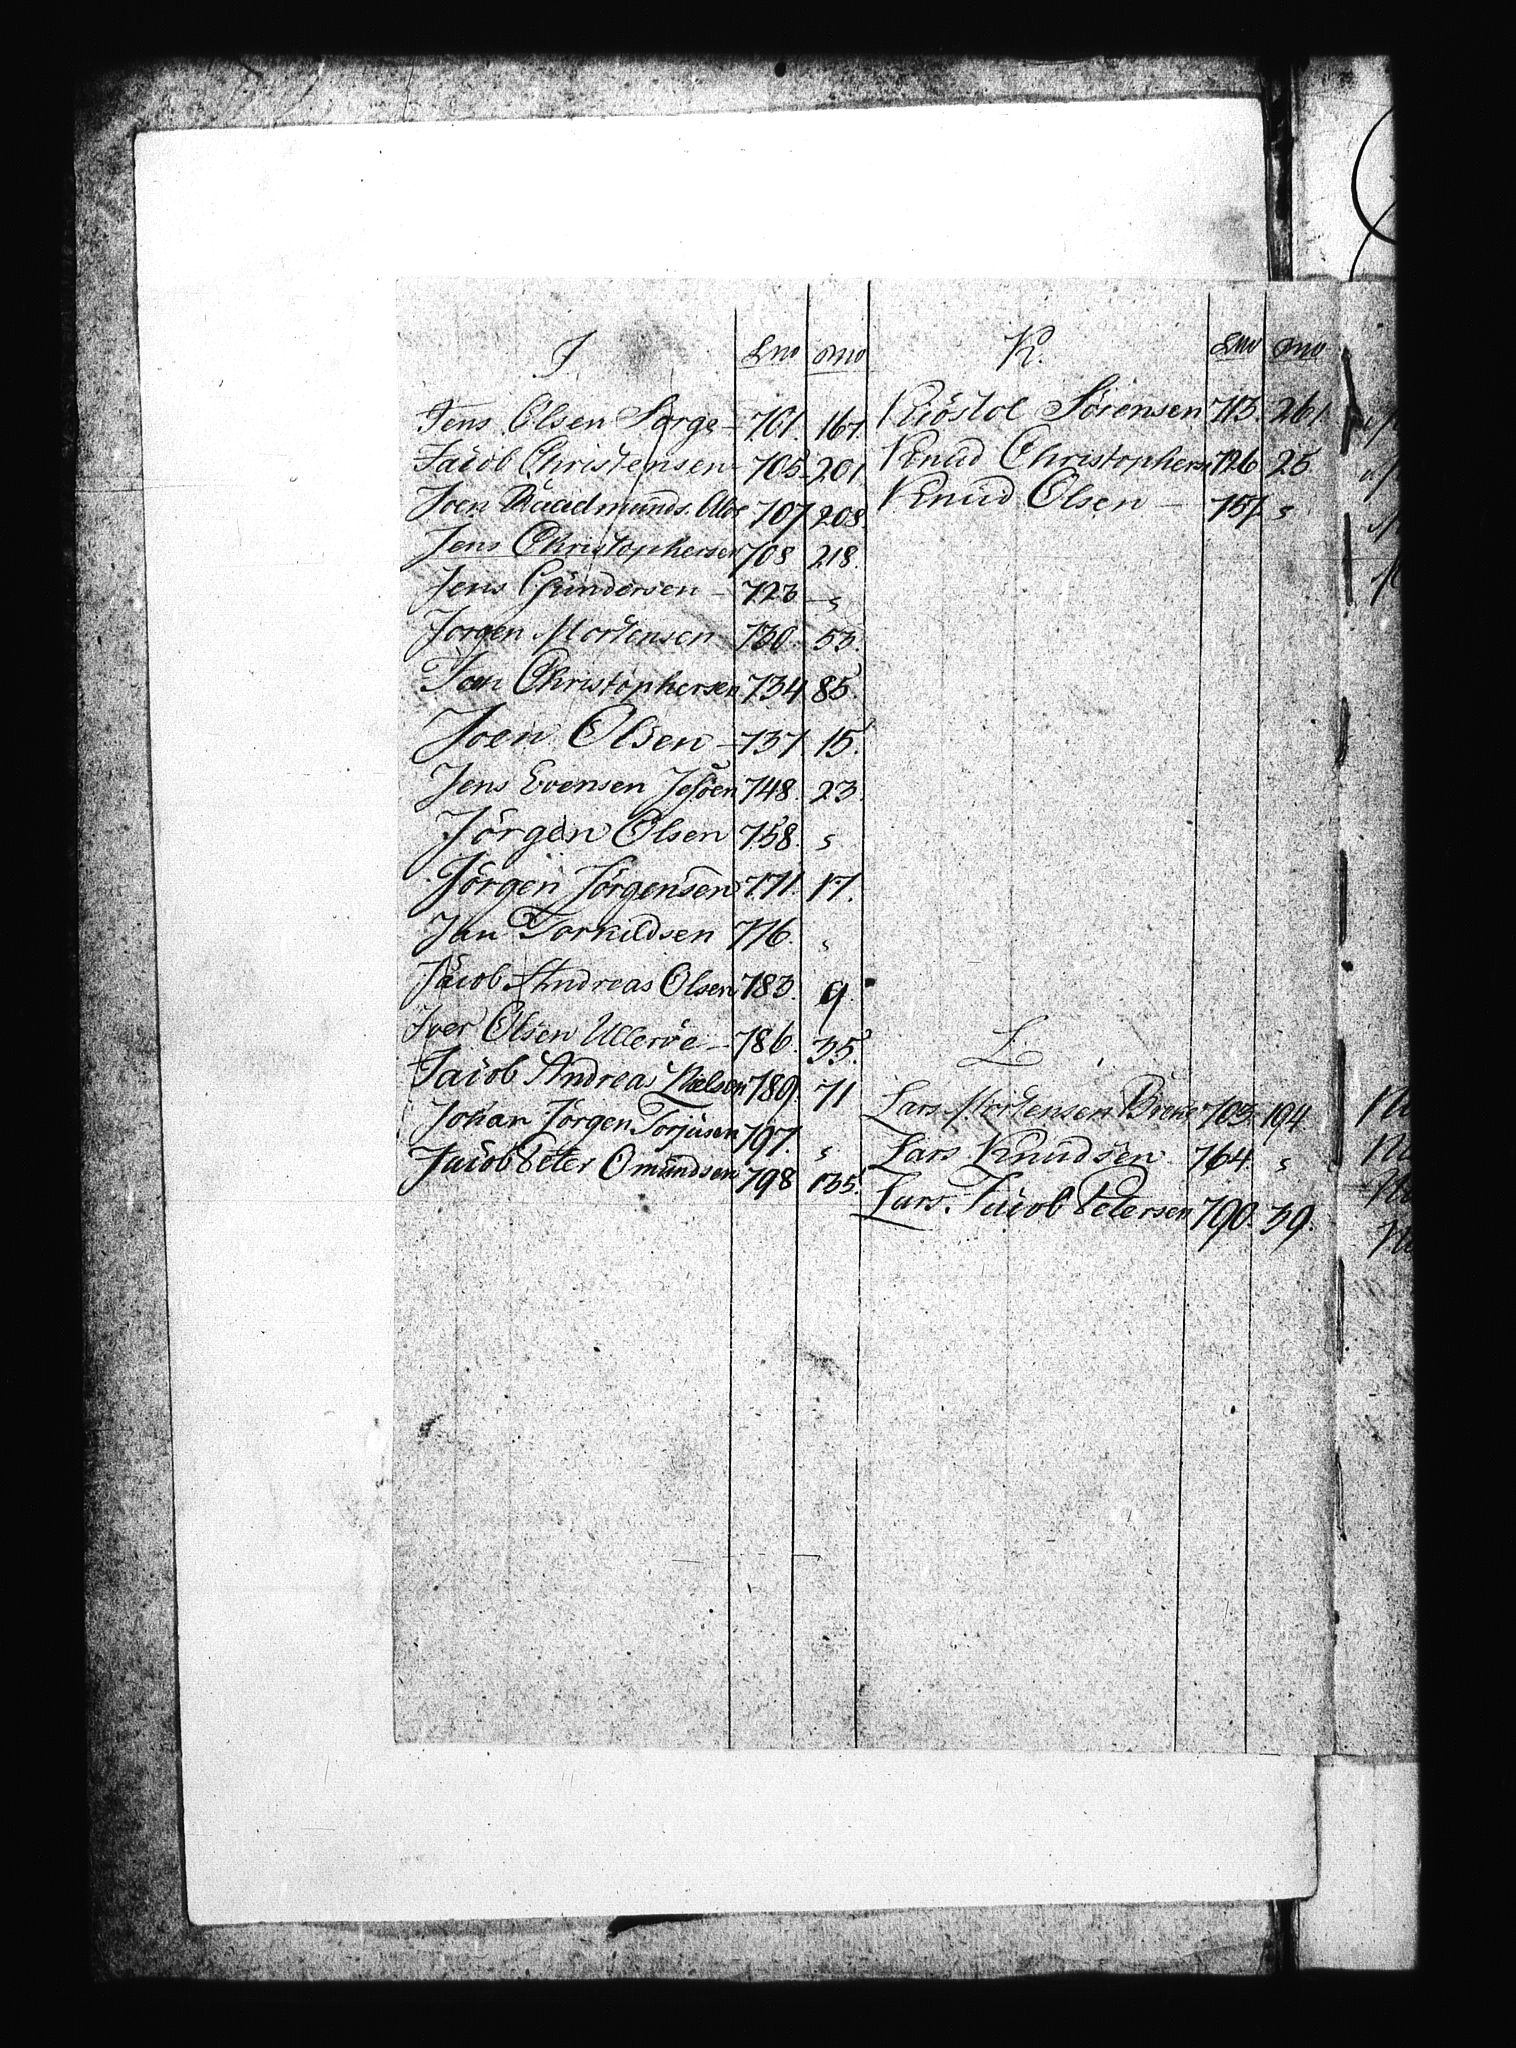 J Lno ono
Jens Olsen Sorge - 701. 167.
Jacob Christensen 705. 201
Joen Raadmunds. 707 208.
Jens Christophersen 708 218.
Jens Gundersen - 723 - "
Jorgen Mortensen 730. 53.
Jan Christophersen 734 85.
Joen Olsen - 737 15.
Jens Evensen 748. 23.
Jörgen Olsen 758. "
Jörgen Jörgensen 771. 17.
Jan Torkildsen 776. "
Jacob Andreas Olsen 783. 9.
Iver Olsen Ulleröe - 786. 35.
Jacob Andreas Nielsen 789. 71
Johan Jörgen Torjusen 797. "
Jacob Peter Omundsen 798 135.
K. Lno ono
Kiöstol Sörensen 713. 261
Knud Christophers 726 25.
Knud Olsen - 757 "
L
Lars Mortensen 703. 194
Lars Knudsen 764. "
Lars Jacob Petersen 790. 39.